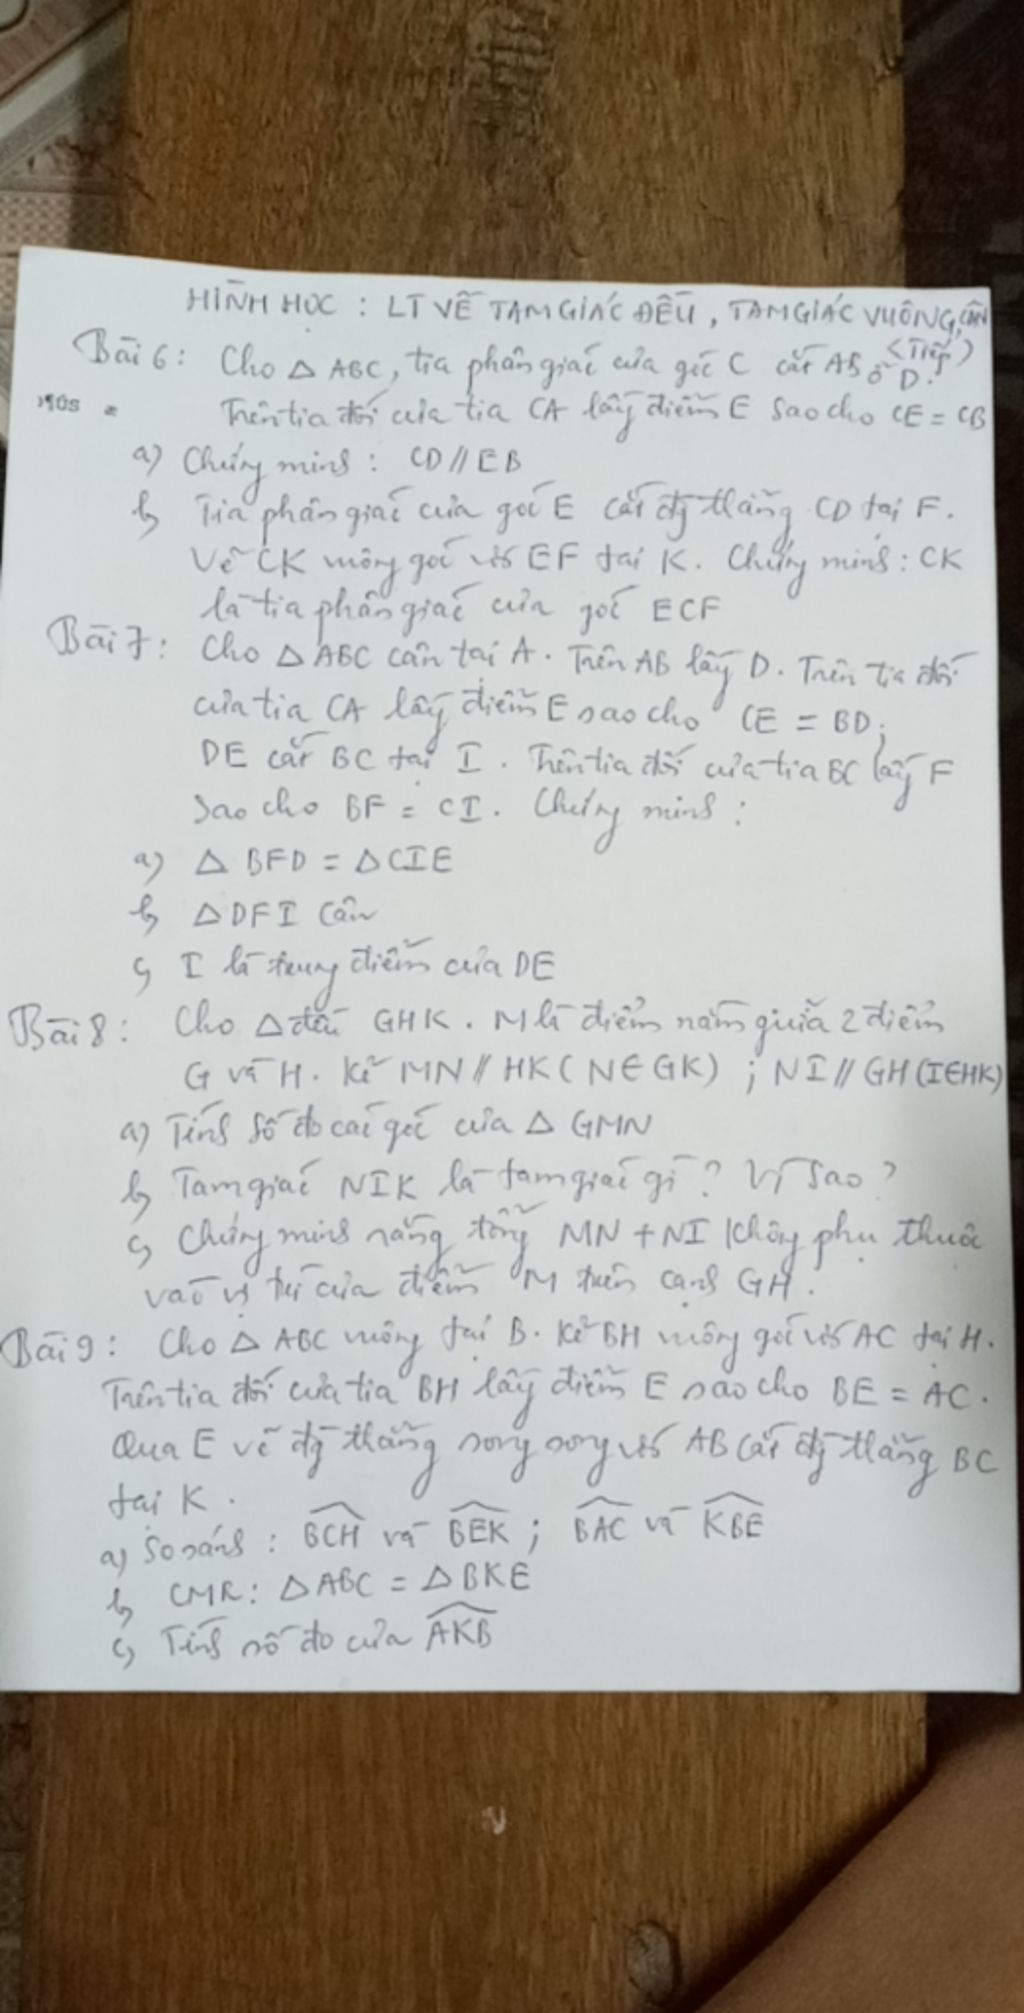 HÌNH HỌC : LT VỀ TAM GIÁC ĐỀU, TAM GIÁC VUÔNG CÂN
<Tiếp>
Bài 6: Cho △ ABC, tia phân giác của góc C cắt AB ở D.
Trên tia đối của tia CA lấy điểm E sao cho CE = CB
a) Chứng minh : CD // EB
b) Tia phân giác của góc E cắt đg thẳng CD tại F.
Vẽ CK vuông góc với EF tại K. Chứng minh : CK
là tia phân giác của góc ECF
Bài 7: Cho △ ABC cân tại A. Trên AB lấy D. Trên tia đối
của tia CA lấy điểm E sao cho CE = BD;
DE cắt BC tại I. Trên tia đối của tia BC lấy F
sao cho BF = CI. Chứng minh :
a) △ BFD = △ CIE
b) △ DFI cân
c) I là trung điểm của DE
Bài 8: Cho △ đều GHK. M là điểm nằm giữa 2 điểm
G và H. Kẻ MN // HK (N ∈ GK) ; NI // GH (I ∈ HK)
a) Tính số đo các góc của △ GMN
b) Tam giác NIK là tam giác gì ? Vì sao ?
c) Chứng minh rằng tổng MN + NI không phụ thuộc
vào vị trí của điểm M trên cạnh GH.
Bài 9: Cho △ ABC vuông tại B. Kẻ BH vuông góc với AC tại H.
Trên tia đối của tia BH lấy điểm E sao cho BE = AC.
Qua E vẽ đg thẳng song song với AB cắt đg thẳng BC
tại K.
a) So sánh : BCH và BEK ; BAC và KBE
b) CMR: △ ABC = △ BKE
c) Tính số đo của AKB